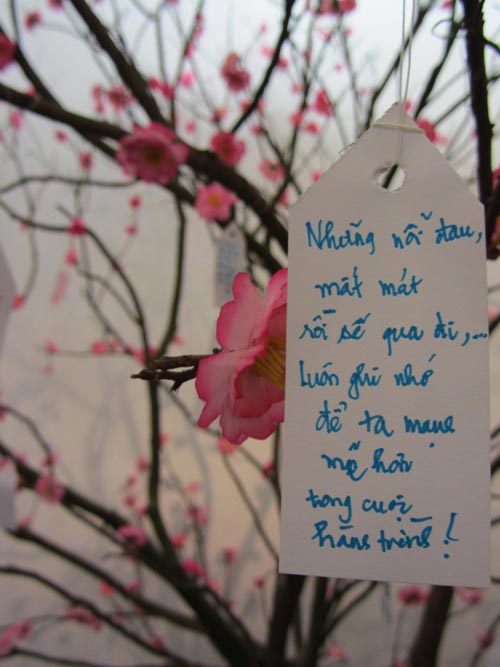 Những nỗi đau,
mất mát
rồi sẽ qua đi,...
Luôn ghi nhớ
để ta mạnh
mẽ hơn
trong cuộc
hành trình!